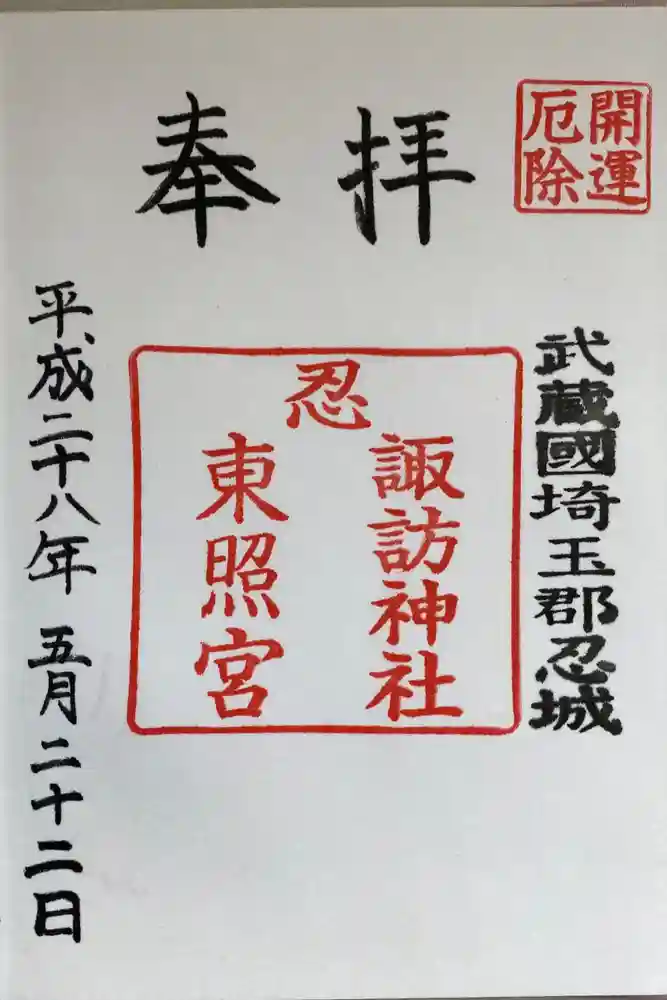 奉拝
開運
厄除
武蔵國埼玉郡忍城
忍
諏訪神社
東照宮
平成二十八年 五月二十二日